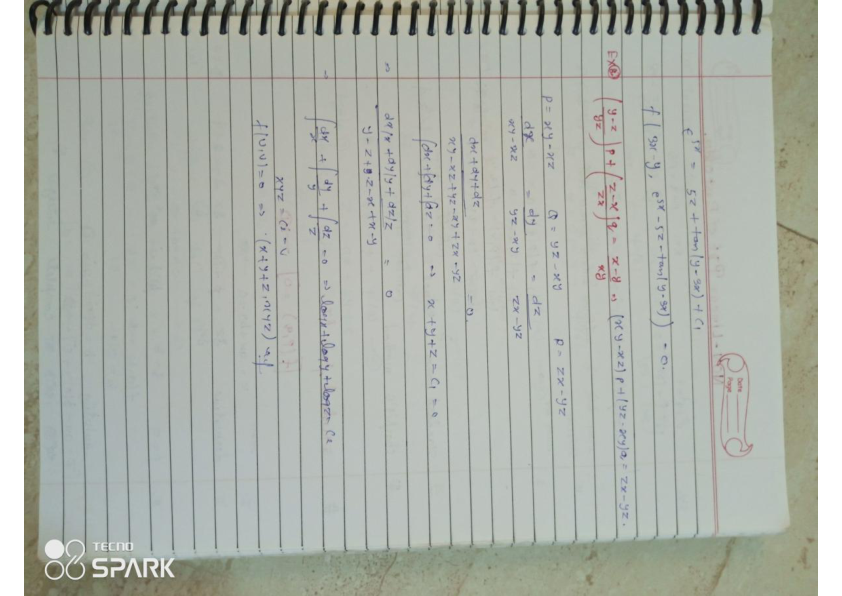 Date
Page
e^5x = 5z + tan(y-3x) + C1
f(3x-y, e^5x - 5z - tan(y-3x)) = 0.
Exe② ((y-z)/yz) p + ((z-x)/zx) q = (x-y)/xy ⇒ (xy-xz)p + (yz-xy)q = zx-yz.
P = xy-xz Q = yz-xy R = zx-yz
dx/(xy-xz) = dy/(yz-xy) = dz/(zx-yz)
(dx+dy+dz)/(xy-xz+yz-xy+zx-yz) = 0.
∫dx+∫dy+∫dz=0 ⇒ x+y+z = C1 = u
(dx/x + dy/y + dz/z)/(y-z+z-x+x-y) = 0
⇒ ∫dx/x + ∫dy/y + ∫dz/z = 0 ⇒ logx+logy+logz = C2
xyz = C2 = v
f(u,v) = 0 ⇒ (x+y+z, xyz)
TECNO
SPARK